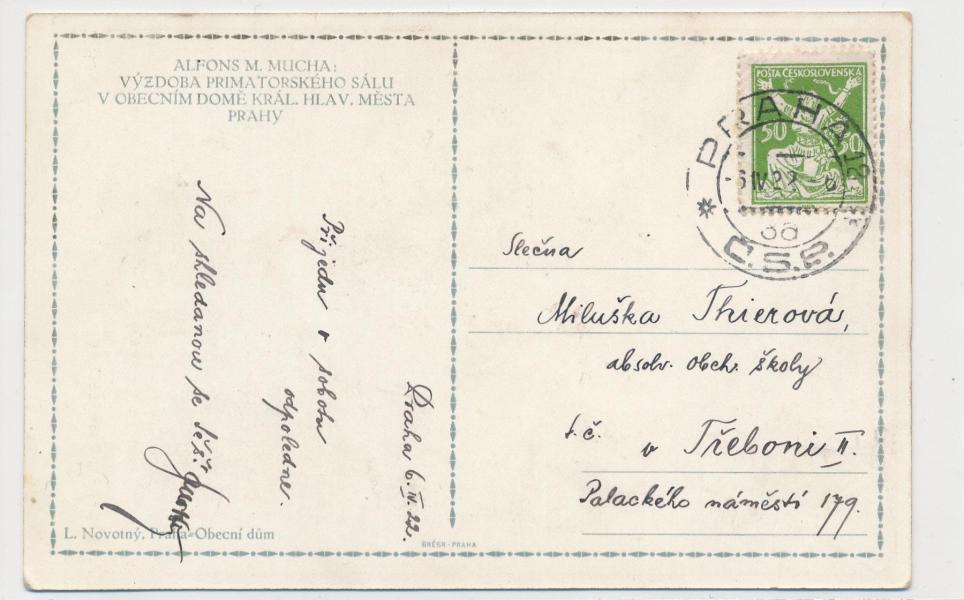 ALFONS M. MUCHA:
VÝZDOBA PRIMATORSKÉHO SÁLU
V OBECNÍM DOMĚ KRÁL. HLAV. MĚSTA
PRAHY
Praha 6. IV. 22.
Přijedu v sobotu
odpoledne.
Na shledanou se těší
L. Novotný, Praha-Obecní dům
GRÉGR - PRAHA
POŠTA ČESKOSLOVENSKÁ
50 50
PRAHA 12
-6 IV 22 - 6
Č.S.P.
Slečna
Miluška Thierová,
absolv. obch. školy
t. č.
v Třeboni II.
Palackého náměstí 179.